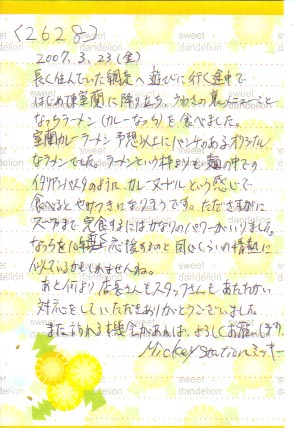 <2628>
2007. 3. 23 (金)
長く住んでいた網走へ遊びに行く途中で
はじめて室蘭に降り立ち、うわさの裏メニューこと
なっちラーメン(カレーなっち)を食べました。
室蘭カレーラーメン予想以上にパンチのあるオリジナル
なラーメンでした。ラーメンという枠よりも麺の中の
イタリアンパスタのように、カレーヌードルという感じで
食べるとやみつきになりそうです。たださすがに
スープまで完食するにはかなりのパワーがいりました。
なっちを応援するのと同じくらい情熱に
似ているかもしれませんね。
あと何より店長さんもスタッフさんも、あたたかい
対応をしていただきありがとうございました。
また訪れる機会があれば、よろしくお願いします。
Mickey station ミッキー
sweet dandelion